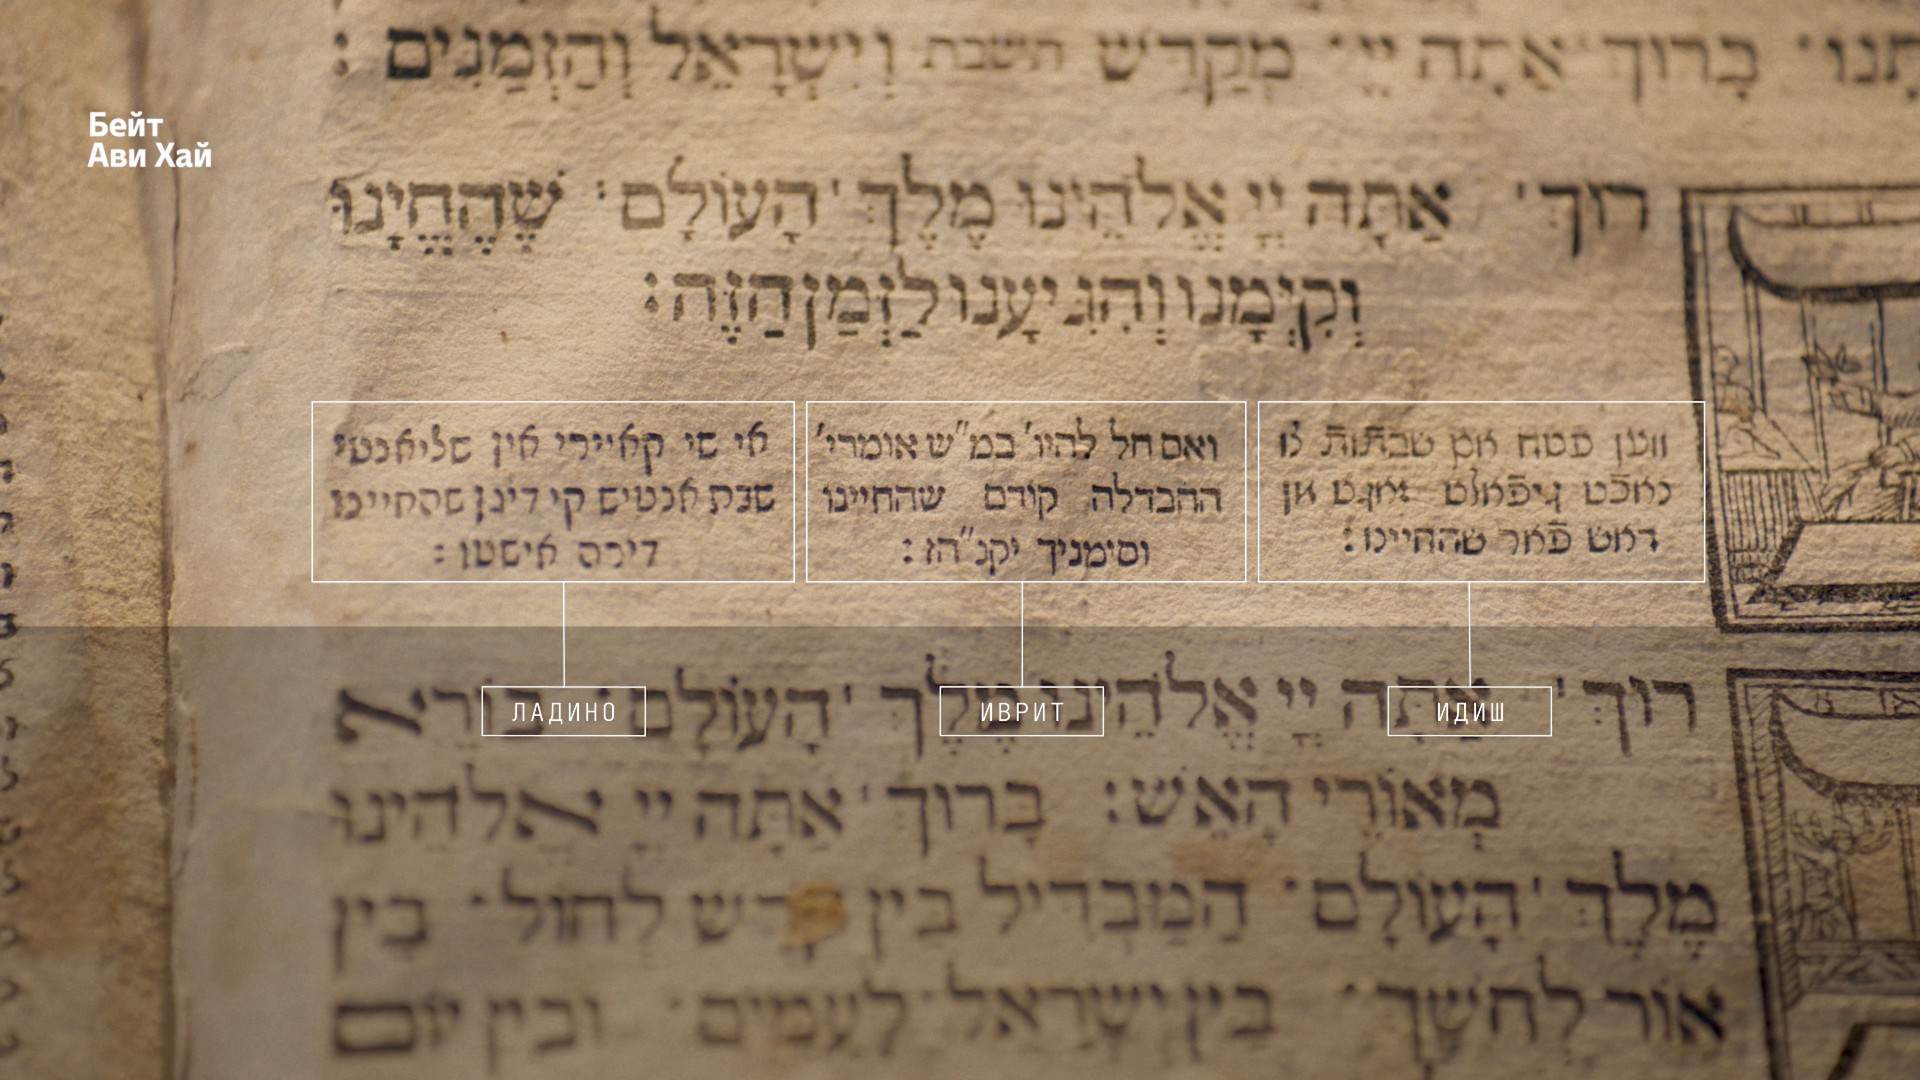 Бейт
Ави Хай
תנו· בָּרוּךְ אַתָּה יְיָ· מְקַדֵּשׁ השבת וְיִשְׂרָאֵל וְהַזְּמַנִּים:
רוּךְ· אַתָּה יְיָ אֱלֹהֵינוּ מֶלֶךְ הָעוֹלָם· שֶׁהֶחֱיָנוּ
וְקִיְּמָנוּ וְהִגִּיעָנוּ לַזְּמַן הַזֶּה:
ווען פסח אם שבתות
נאכט גיפֿאלט זאגט אן
דאש פֿאר שהחיינו:
ואם חל להיו' במ"ש אומרי'
ההבדלה קודם שהחיינו
וסימניך יקנ"הז:
אי שי קאיירי אין
שבת אנטיש קי דיגן שהחיינו
דירה אישטו:
ЛАДИНО
ИВРИТ
ИДИШ
רוּךְ· אַתָּה יְיָ אֱלֹהֵינוּ מֶלֶךְ הָעוֹלָם· בּוֹרֵא
מְאוֹרֵי הָאֵשׁ: בָּרוּךְ אַתָּה יְיָ אֱלֹהֵינוּ
מֶלֶךְ הָעוֹלָם· הַמַּבְדִּיל בֵּין קֹדֶשׁ לְחוֹל· בֵּין
אוֹר לְחֹשֶׁךְ· בֵּין יִשְׂרָאֵל לָעַמִּים· וּבֵין יוֹם